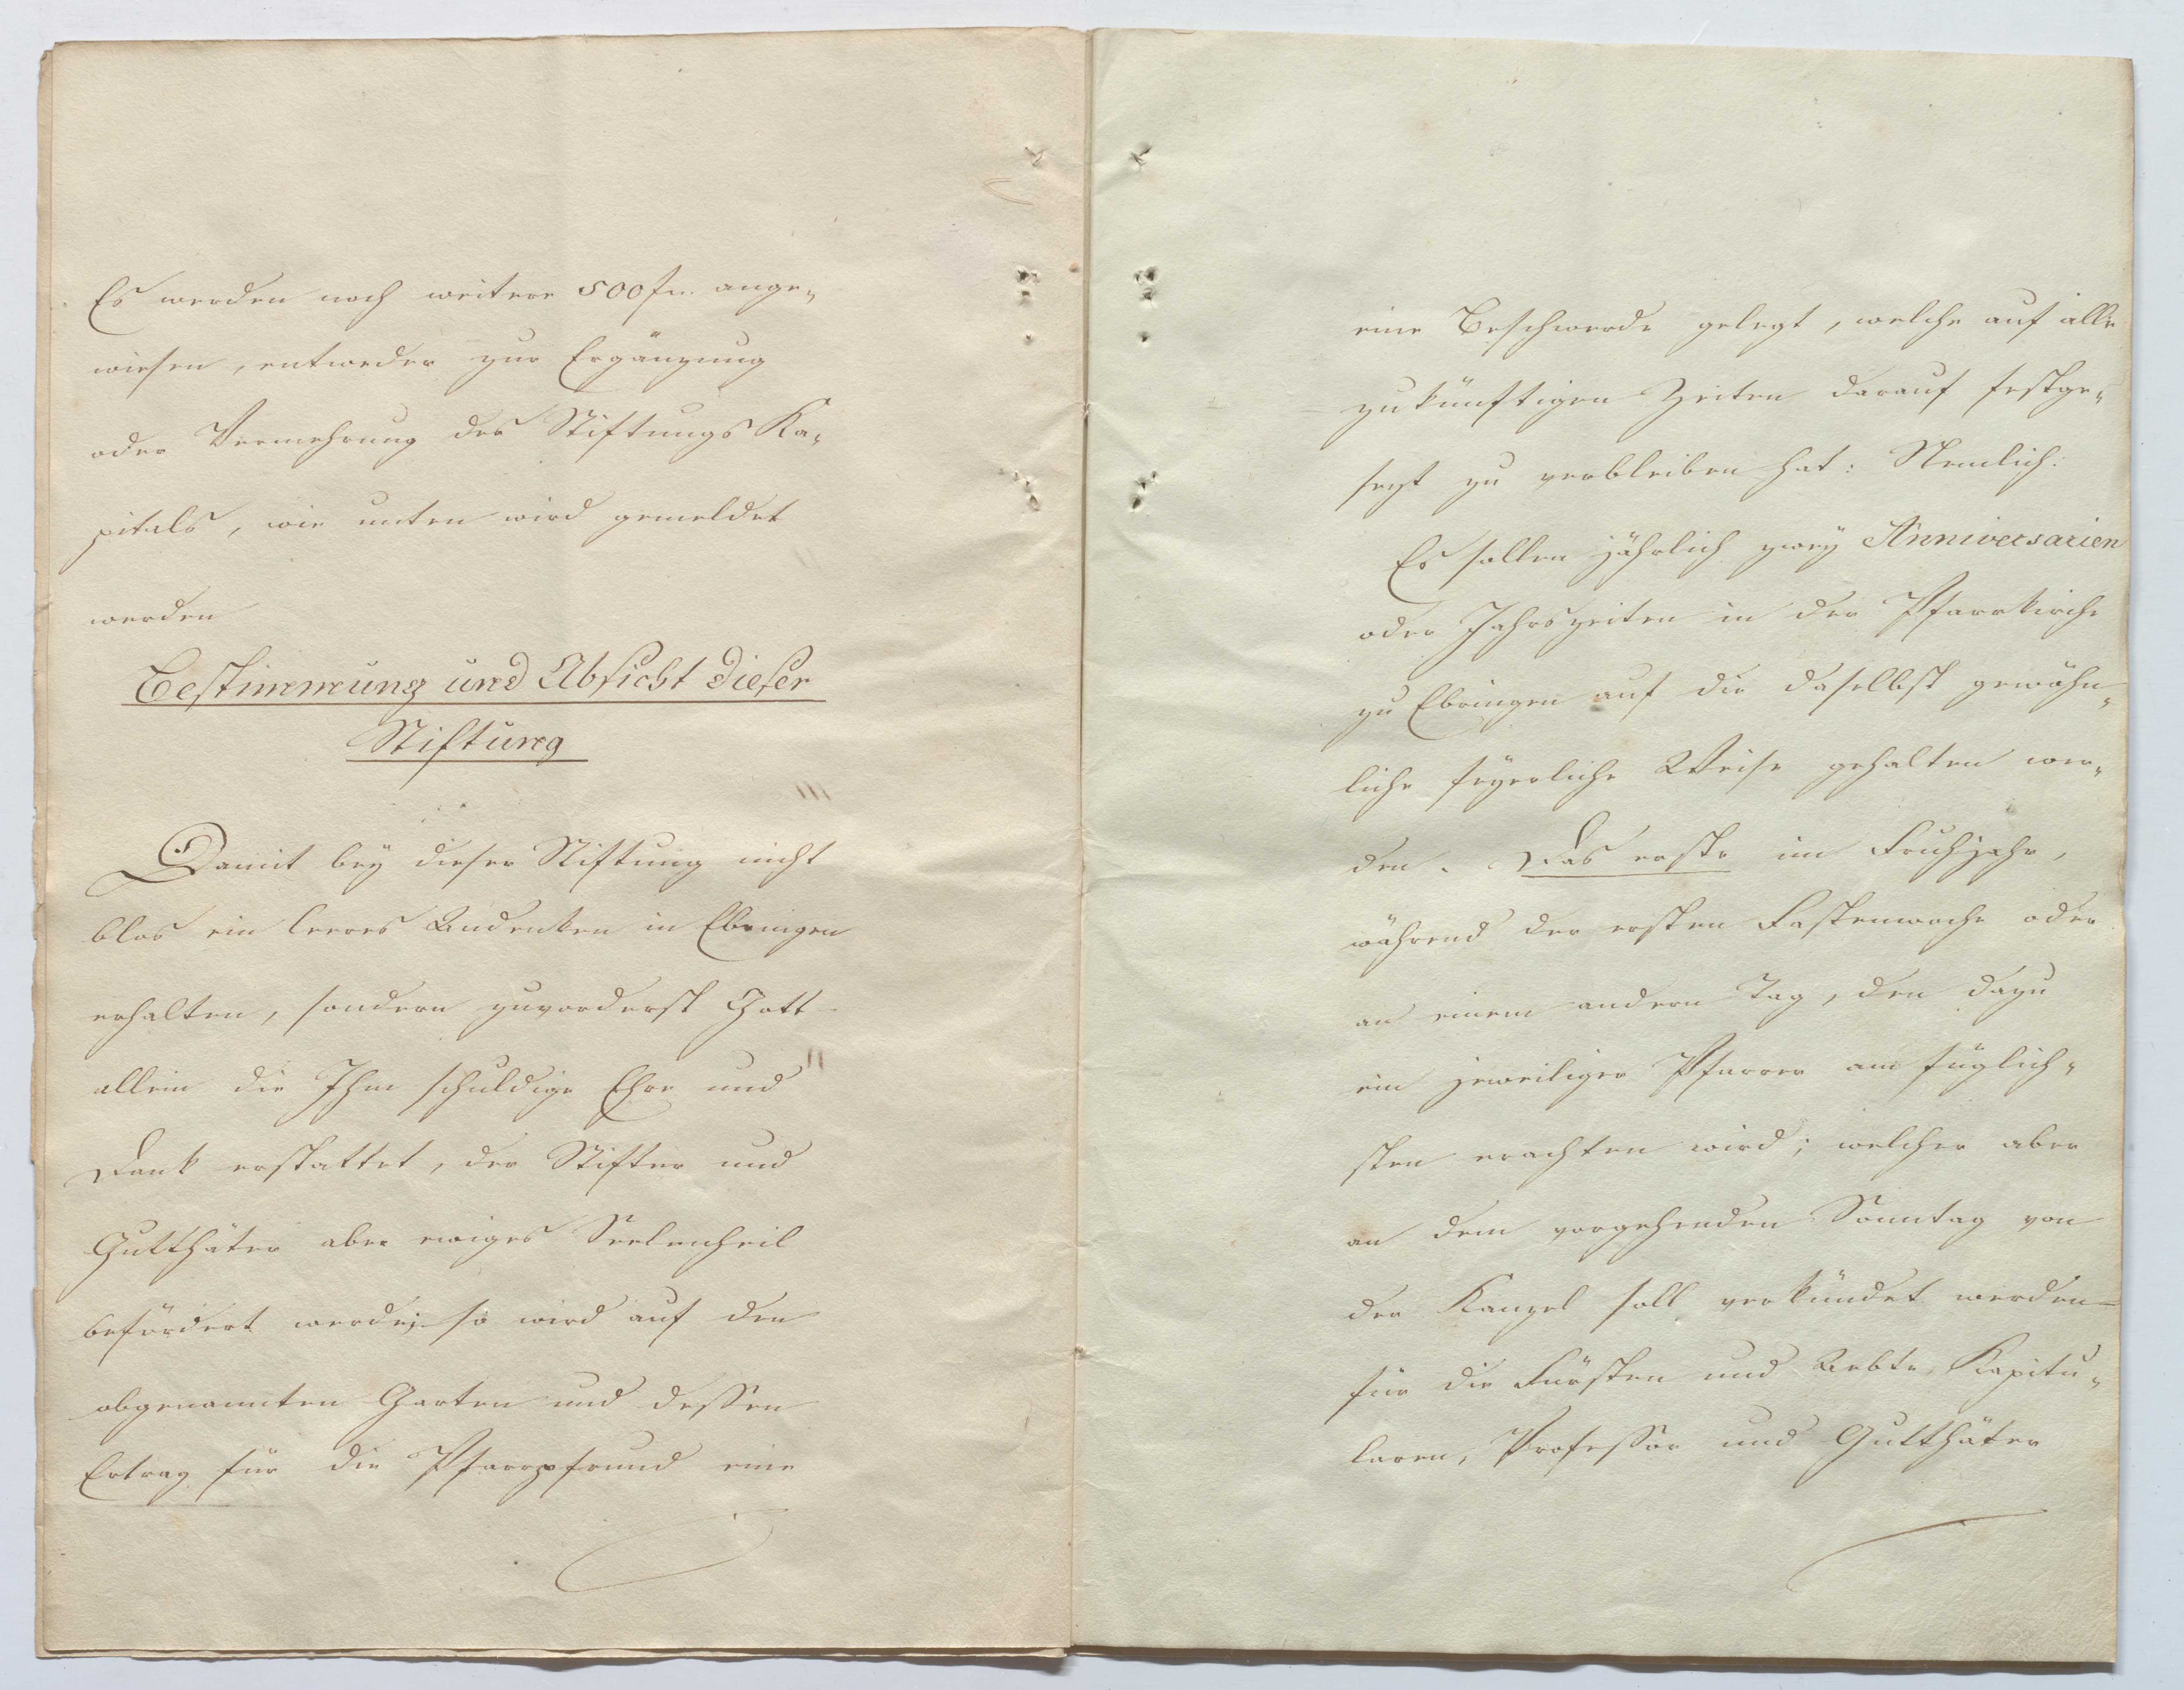 Es werden noch weitere 500 fr. ange„
wiesen, entweder zur Ergänzung
oder Vermehrung des Stiftungs Ka„
pitals, wie unten wird gemeldet
werden
Bestimmung und Absicht dieser
Stiftung
Damit bey dieser Stiftung nicht
blos ein leeres Andenken in Ebringen
erhalten, sondern zuvorderst Gott
allein die Ihm schuldige Ehre und
Dank erstattet, der Stifter und
Gutthäter aber ewiges Seelenheil
befördert werde; so wird auf den
obgenannten Garten und dessen
Ertrag für die Pfarrpfrund eine
eine Beschwerde gelegt, welche auf alle
zukünftigen Zeiten darauf festge„
sezt zu verbleiben hat: Nemlich:
Es sollen jährlich zwey Anniversarien
oder Jahrszeiten in der Pfarrkirche
zu Ebringen auf die daselbst gewöhn„
liche feyerliche Weise gehalten wer„
den. Das erste im Fruhjahr,
während der ersten Fastenwoche oder
an einem andern Tag, den dazu
ein jeweiliger Pfarrer am füglich„
sten erachten wird; welcher aber
an dem vorgehenden Sonntag von
der Kanzel soll verkündet werden
für die Fürsten und Aebte, Kapitu„
laren, Professor und Gutthäter